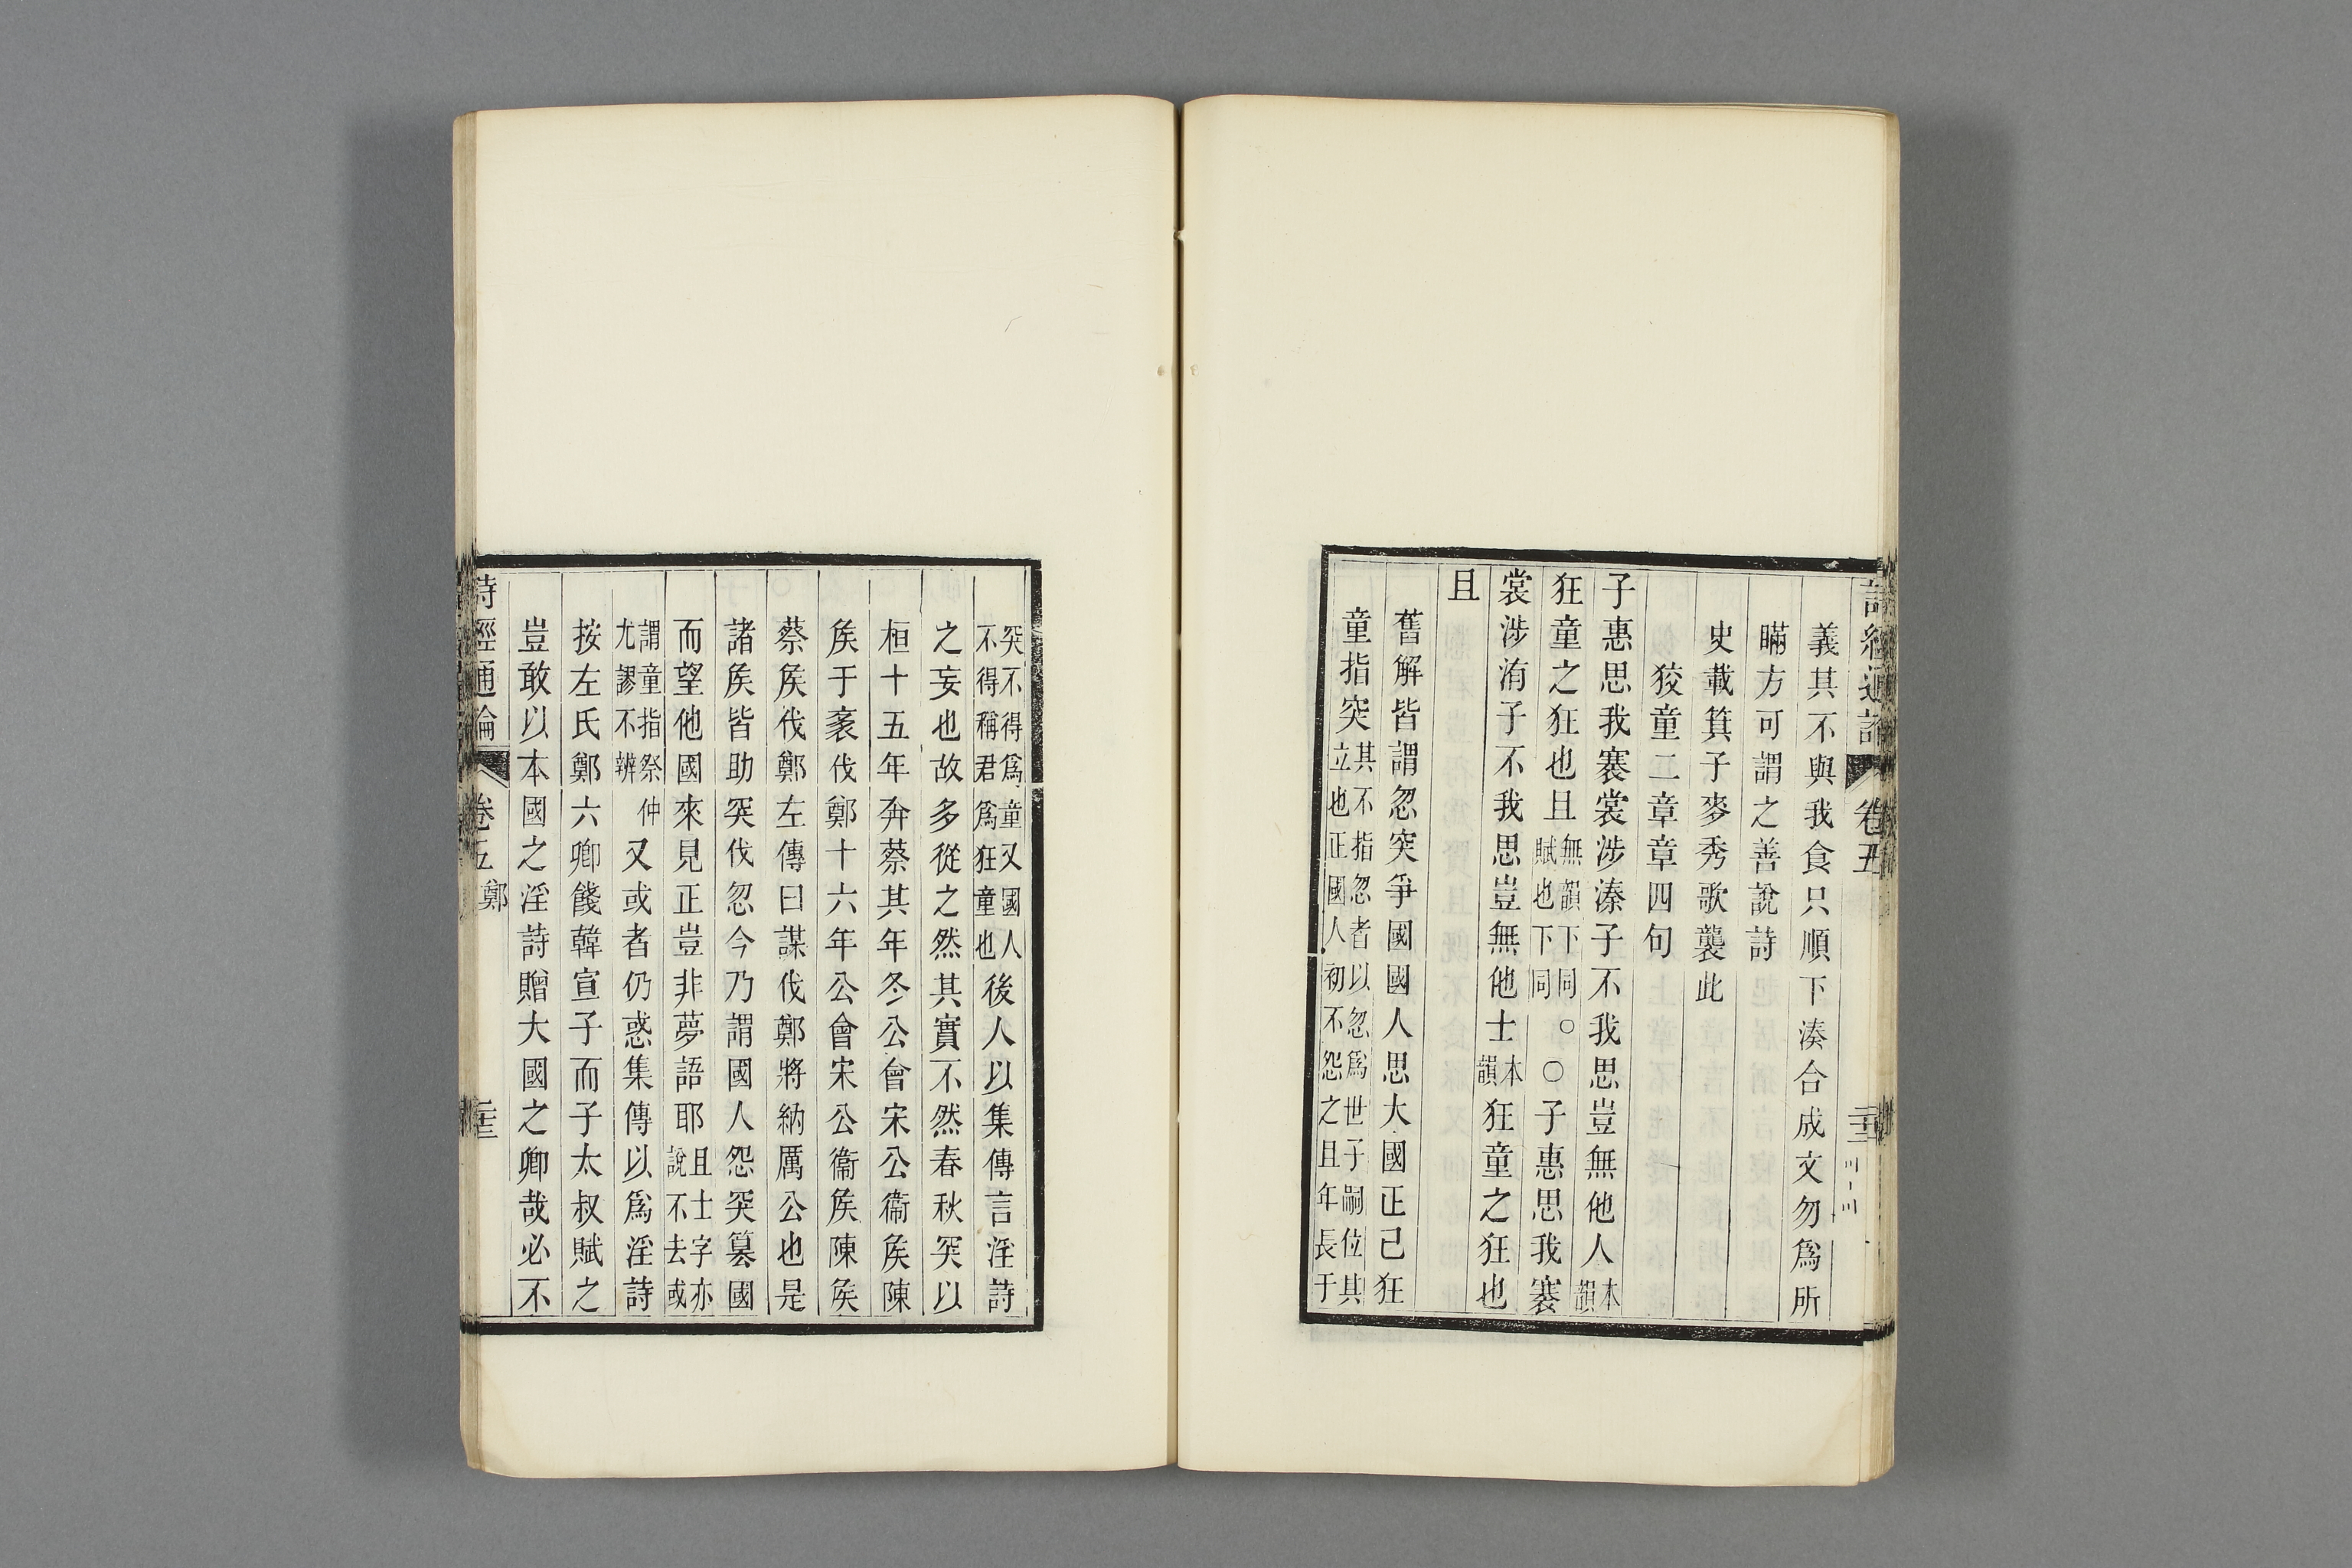 詩經通論 卷五
義其不與我食只順下湊合成文勿爲所
瞞方可謂之善說詩
史載箕子麥秀歌襲此
狡童二章章四句
子惠思我褰裳涉溱子不我思豈無他人本韻
狂童之狂也且無韻下同賦也下同○○子惠思我褰
裳涉洧子不我思豈無他士本韻狂童之狂也
且
舊解皆謂忽突爭國國人思大國正己狂
童指突其不指忽者以忽爲世子嗣位其立也正國人初不怨之且年長于
突不得爲童又國人不得稱君爲狂童也後人以集傳言淫詩
之妄也故多從之然其實不然春秋突以
桓十五年奔蔡其年冬公會宋公衞矦陳
矦于袲伐鄭十六年公會宋公衞矦陳矦
蔡矦伐鄭左傳曰謀伐鄭將納厲公也是
諸矦皆助突伐忽今乃謂國人怨突篡國
而望他國來見正豈非夢語耶且士字亦說不去或
謂童指祭仲尤謬不辨又或者仍惑集傳以爲淫詩
按左氏鄭六卿餞韓宣子而子太叔賦之
豈敢以本國之淫詩贈大國之卿哉必不
詩經通論 卷五 鄭